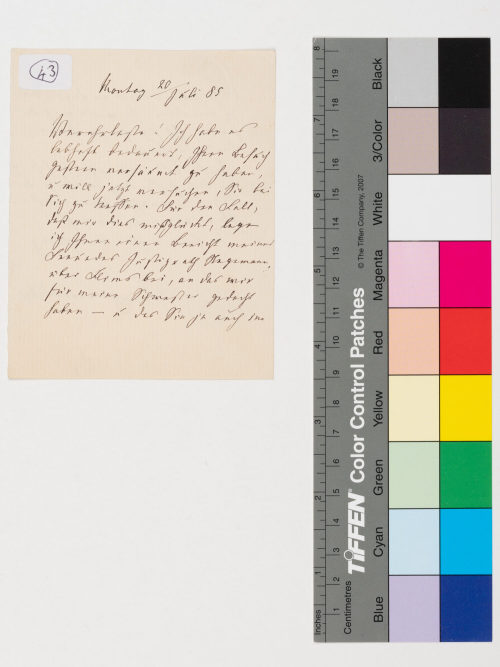 43
Montag 20/Juli 85
Verehrteste! Ich habe es
lebhaft bedauert, Ihren Besuch
gestern versäumt zu haben,
u will jetzt versuchen, Sie bei
Tisch zu treffen. Für den Fall,
daß mir dies mißglückt, lege
ich Ihnen einen Bericht meines
Freundes Justizrath Hagemann,
über Ilms bei, an das wir
für meine Schwester gedacht
haben — u das Sie ja auch
8
7
6
5
4
3
2
1
Inches
19
18
17
16
15
14
13
12
11
10
9
8
7
6
5
4
3
2
1
Centimetres
TIFFEN® Color Control Patches
© The Tiffen Company, 2007
Black
3/Color
White
Magenta
Red
Yellow
Green
Cyan
Blue